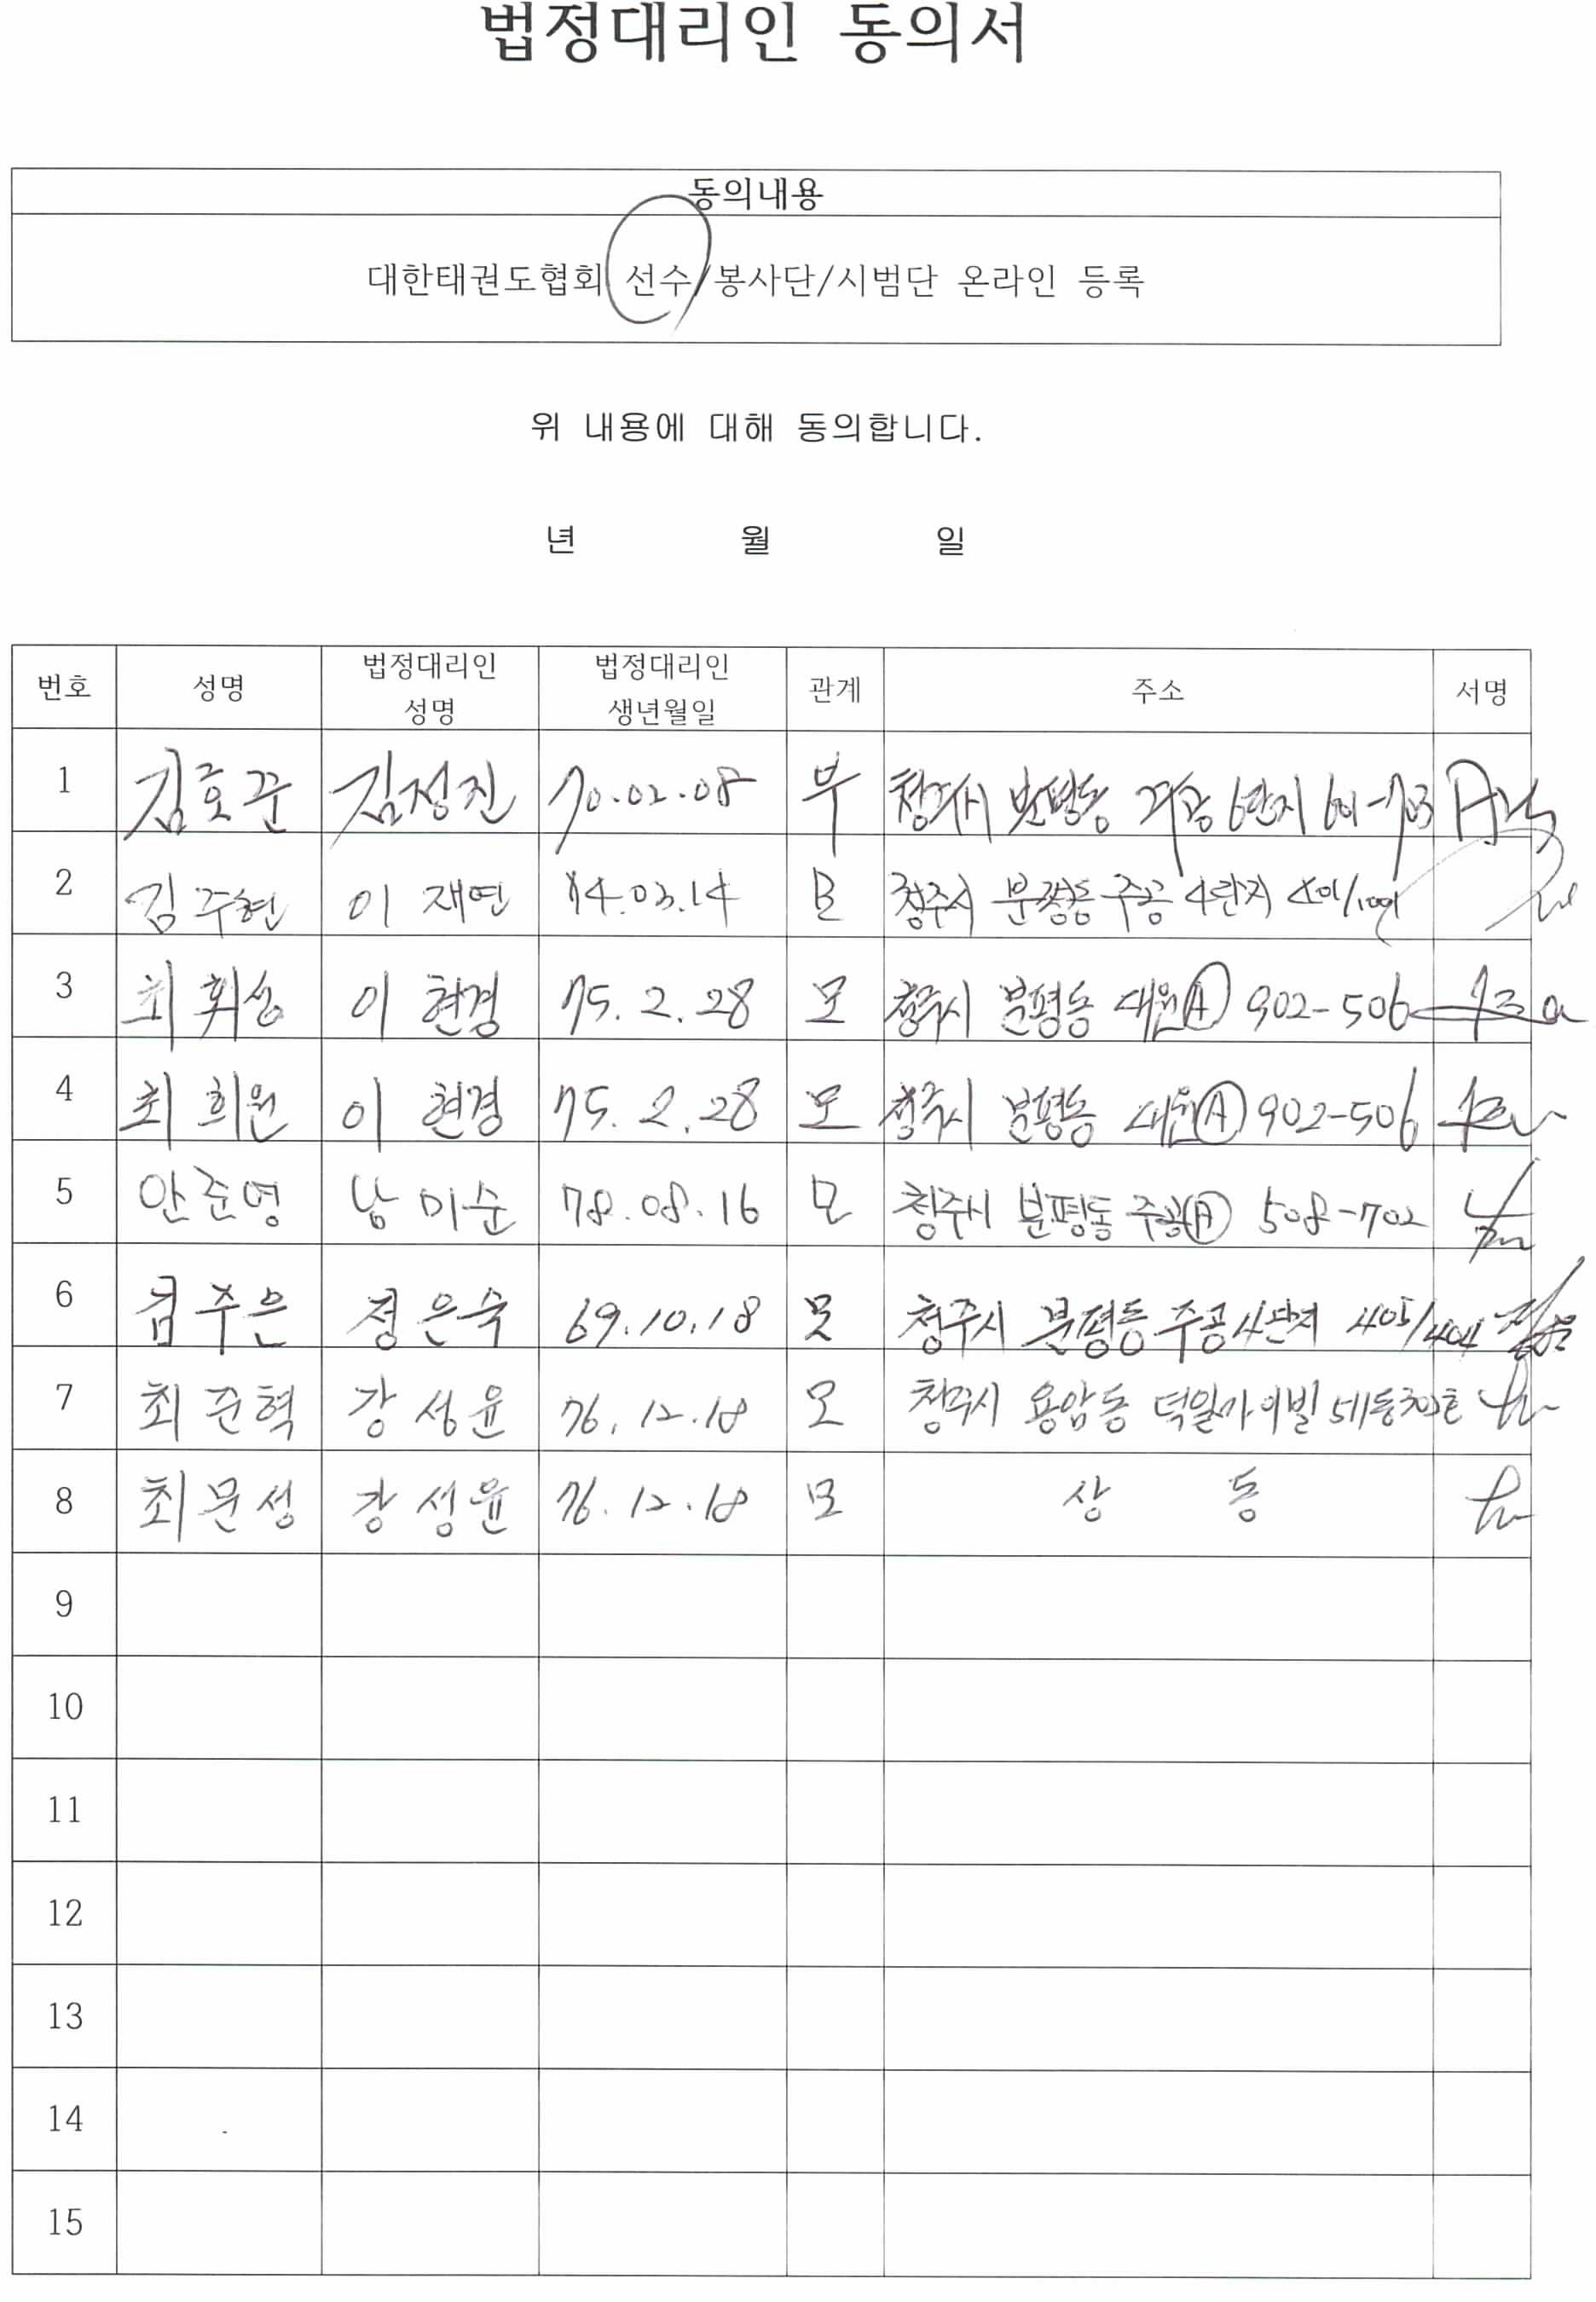 법정대리인 동의서
동의내용
대한태권도협회 선수/봉사단/시범단 온라인 등록
위 내용에 대해 동의합니다.
년 월 일
번호 성명 법정대리인 성명 법정대리인 생년월일 관계 주소 서명
1 김호준 김정진 70.02.08 부 청주시 분평동 주공 6단지 601-703
2 김주현 이재연 74.03.14 모 청주시 분평동 주공 4단지
3 최휘성 이현경 75.2.28 모 청주시 분평동 대원Ⓐ 902-506
4 최희원 이현경 75.2.28 모 청주시 분평동 대원Ⓐ 902-506
5 안준영 남미순 78.08.16 모 청주시 분평동 주공Ⓐ 508-702
6 김주은 정은숙 69.10.18 모 청주시 분평동 주공4단지 405/404
7 최준혁 강성윤 76.12.18 모 청주시 용암동 덕일마이빌
8 최문성 강성윤 76.12.18 모 상동
9
10
11
12
13
14
15